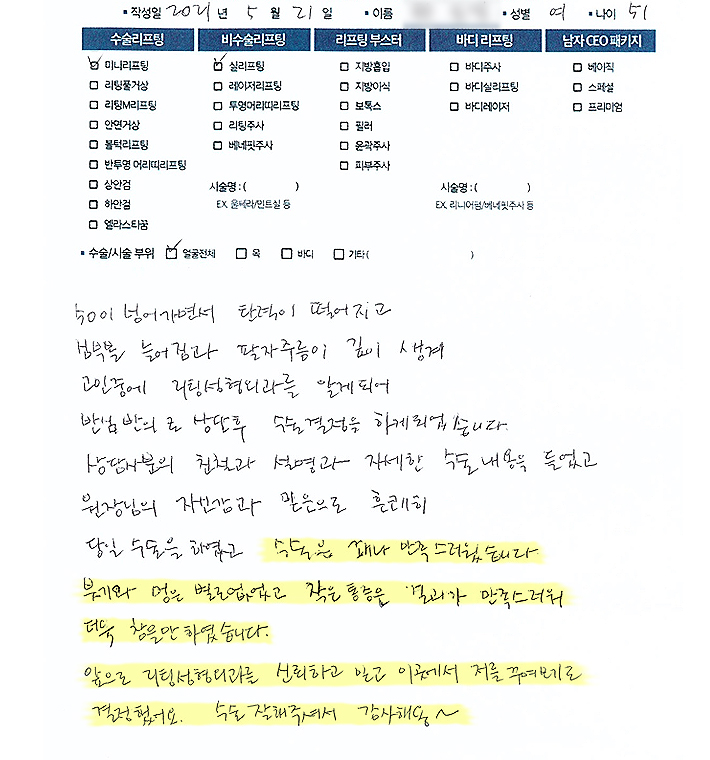 ▪ 작성일 2021 년 5 월 21 일 ▪ 이름 ▪ 성별 여 ▪ 나이 51
수술리프팅 비수술리프팅 리프팅 부스터 바디 리프팅 남자 CEO 패키지
미니리프팅 실리프팅 지방흡입 바디주사 베이직
리팅풀거상 레이저리프팅 지방이식 바디실리프팅 스페셜
리팅M리프팅 투명머리띠리프팅 보톡스 바디레이저 프리미엄
안면거상 리팅주사 필러
볼턱리프팅 베네핏주사 윤곽주사
반투명 머리띠리프팅 피부주사
상안검 시술명 : ( ) 시술명 : ( )
하안검 EX. 울쎄라/민트실 등 EX. 리니어펌/베네핏주사 등
엘라스티꿈
▪ 수술/시술 부위 얼굴전체 목 바디 기타( )
50이 넘어가면서 탄력이 떨어지고
심부볼 늘어짐과 팔자주름이 깊이 생겨
고민중에 리팅성형외과를 알게되어
반신반의로 상담후 수술결정을 하게되었습니다.
상담사분의 친절과 설명과 자세한 수술내용을 들었고
원장님의 자신감과 믿음으로 흔쾌히
당일 수술을 하였고 수술은 꽤나 만족스러웠습니다
붓기와 멍은 별로없었고 작은통증은 결과가 만족스러워
더욱 참을만하였습니다.
앞으로 리팅성형외과를 신뢰하고 믿고 이곳에서 저를 꾸며보기로
결정했어요. 수술 잘해주셔서 감사해용~